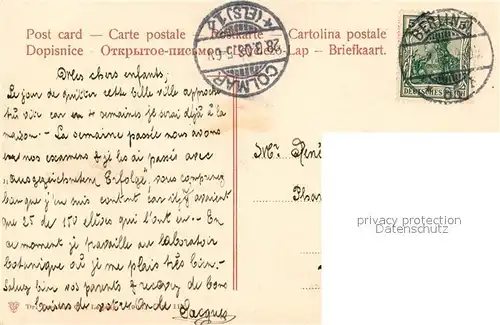 Post card — Carte postale — Postkarte — Cartolina postale
Dopisnice — Открытое письмо — Levelező-Lap — Briefkaart.
COLMAR
(ELS) 1
BERLIN
DEUTSCHES REICH
Mes chers enfants,
Le jour de quitter cette belle ville approche
tu vite car en 4 semaines je serai déjà à la
maison. — La semaine passée nous avons
eu nos examens & je les ai passés avec
„ausgezeichnetem Erfolge", vous comprenez
bien que j'en suis content car il y avaient
que 25 de 150 élèves qui l'ont eu. — En
ce moment je travaille au laboratoir
botanique où je me plais très bien. —
Saluez bien vos parents & recevez de bons
baisers de votre Oncle Jacques
Mr. René
Phar
privacy protection
Datenschutz